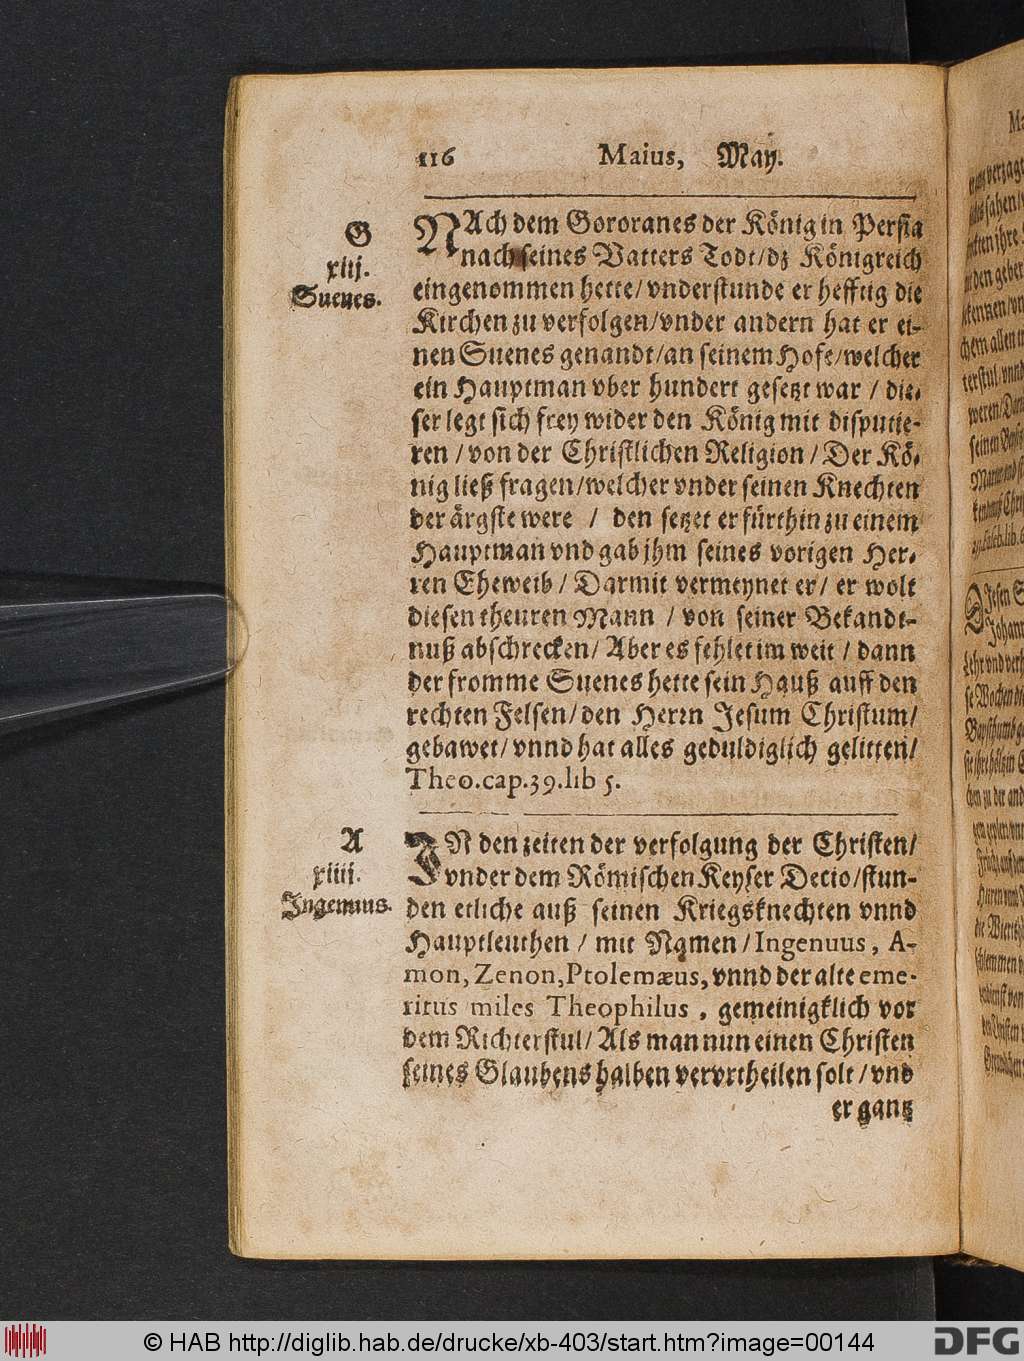 116 Maius, May.
G
xiij.
Suenes.
NAch dem Gororanes der König in Persia
nach seines Vatters Todt/dz Königreich
eingenommen hette/vnderstunde er hefftig die
Kirchen zu verfolgen/vnder andern hat er ei-
nen Suenes genandt/an seinem Hofe/welcher
ein Hauptman vber hundert gesetzt war / die-
ser legt sich frey wider den König mit disputie-
ren / von der Christlichen Religion / Der Kö-
nig ließ fragen/welcher vnder seinen Knechten
der ärgste were / den setzet er fürthin zu einem
Hauptman vnd gab jhm seines vorigen Her-
ren Eheweib / Darmit vermeynet er/ er wolt
diesen theuren Mann / von seiner Bekandt-
nuß abschrecken/ Aber es fehlet im weit / dann
der fromme Suenes hette sein Hauß auff den
rechten Felsen/den Herrn Jesum Christum/
gebawet/vnnd hat alles geduldiglich gelitten/
Theo.cap.39.lib 5.
A
xiiij.
Ingenuus.
IN den zeiten der verfolgung der Christen/
vnder dem Römischen Keyser Decio/stun-
den etliche auß seinen Kriegsknechten vnnd
Hauptleuthen / mit Namen/Ingenuus, A-
mon, Zenon, Ptolemæus, vnnd der alte eme-
ritus miles Theophilus, gemeinigklich vor
dem Richterstul/ Als man nun einen Christen
seines Glaubens halben vervrtheilen solt /vnd
er gantz
© HAB http://diglib.hab.de/drucke/xb-403/start.htm?image=00144
DFG